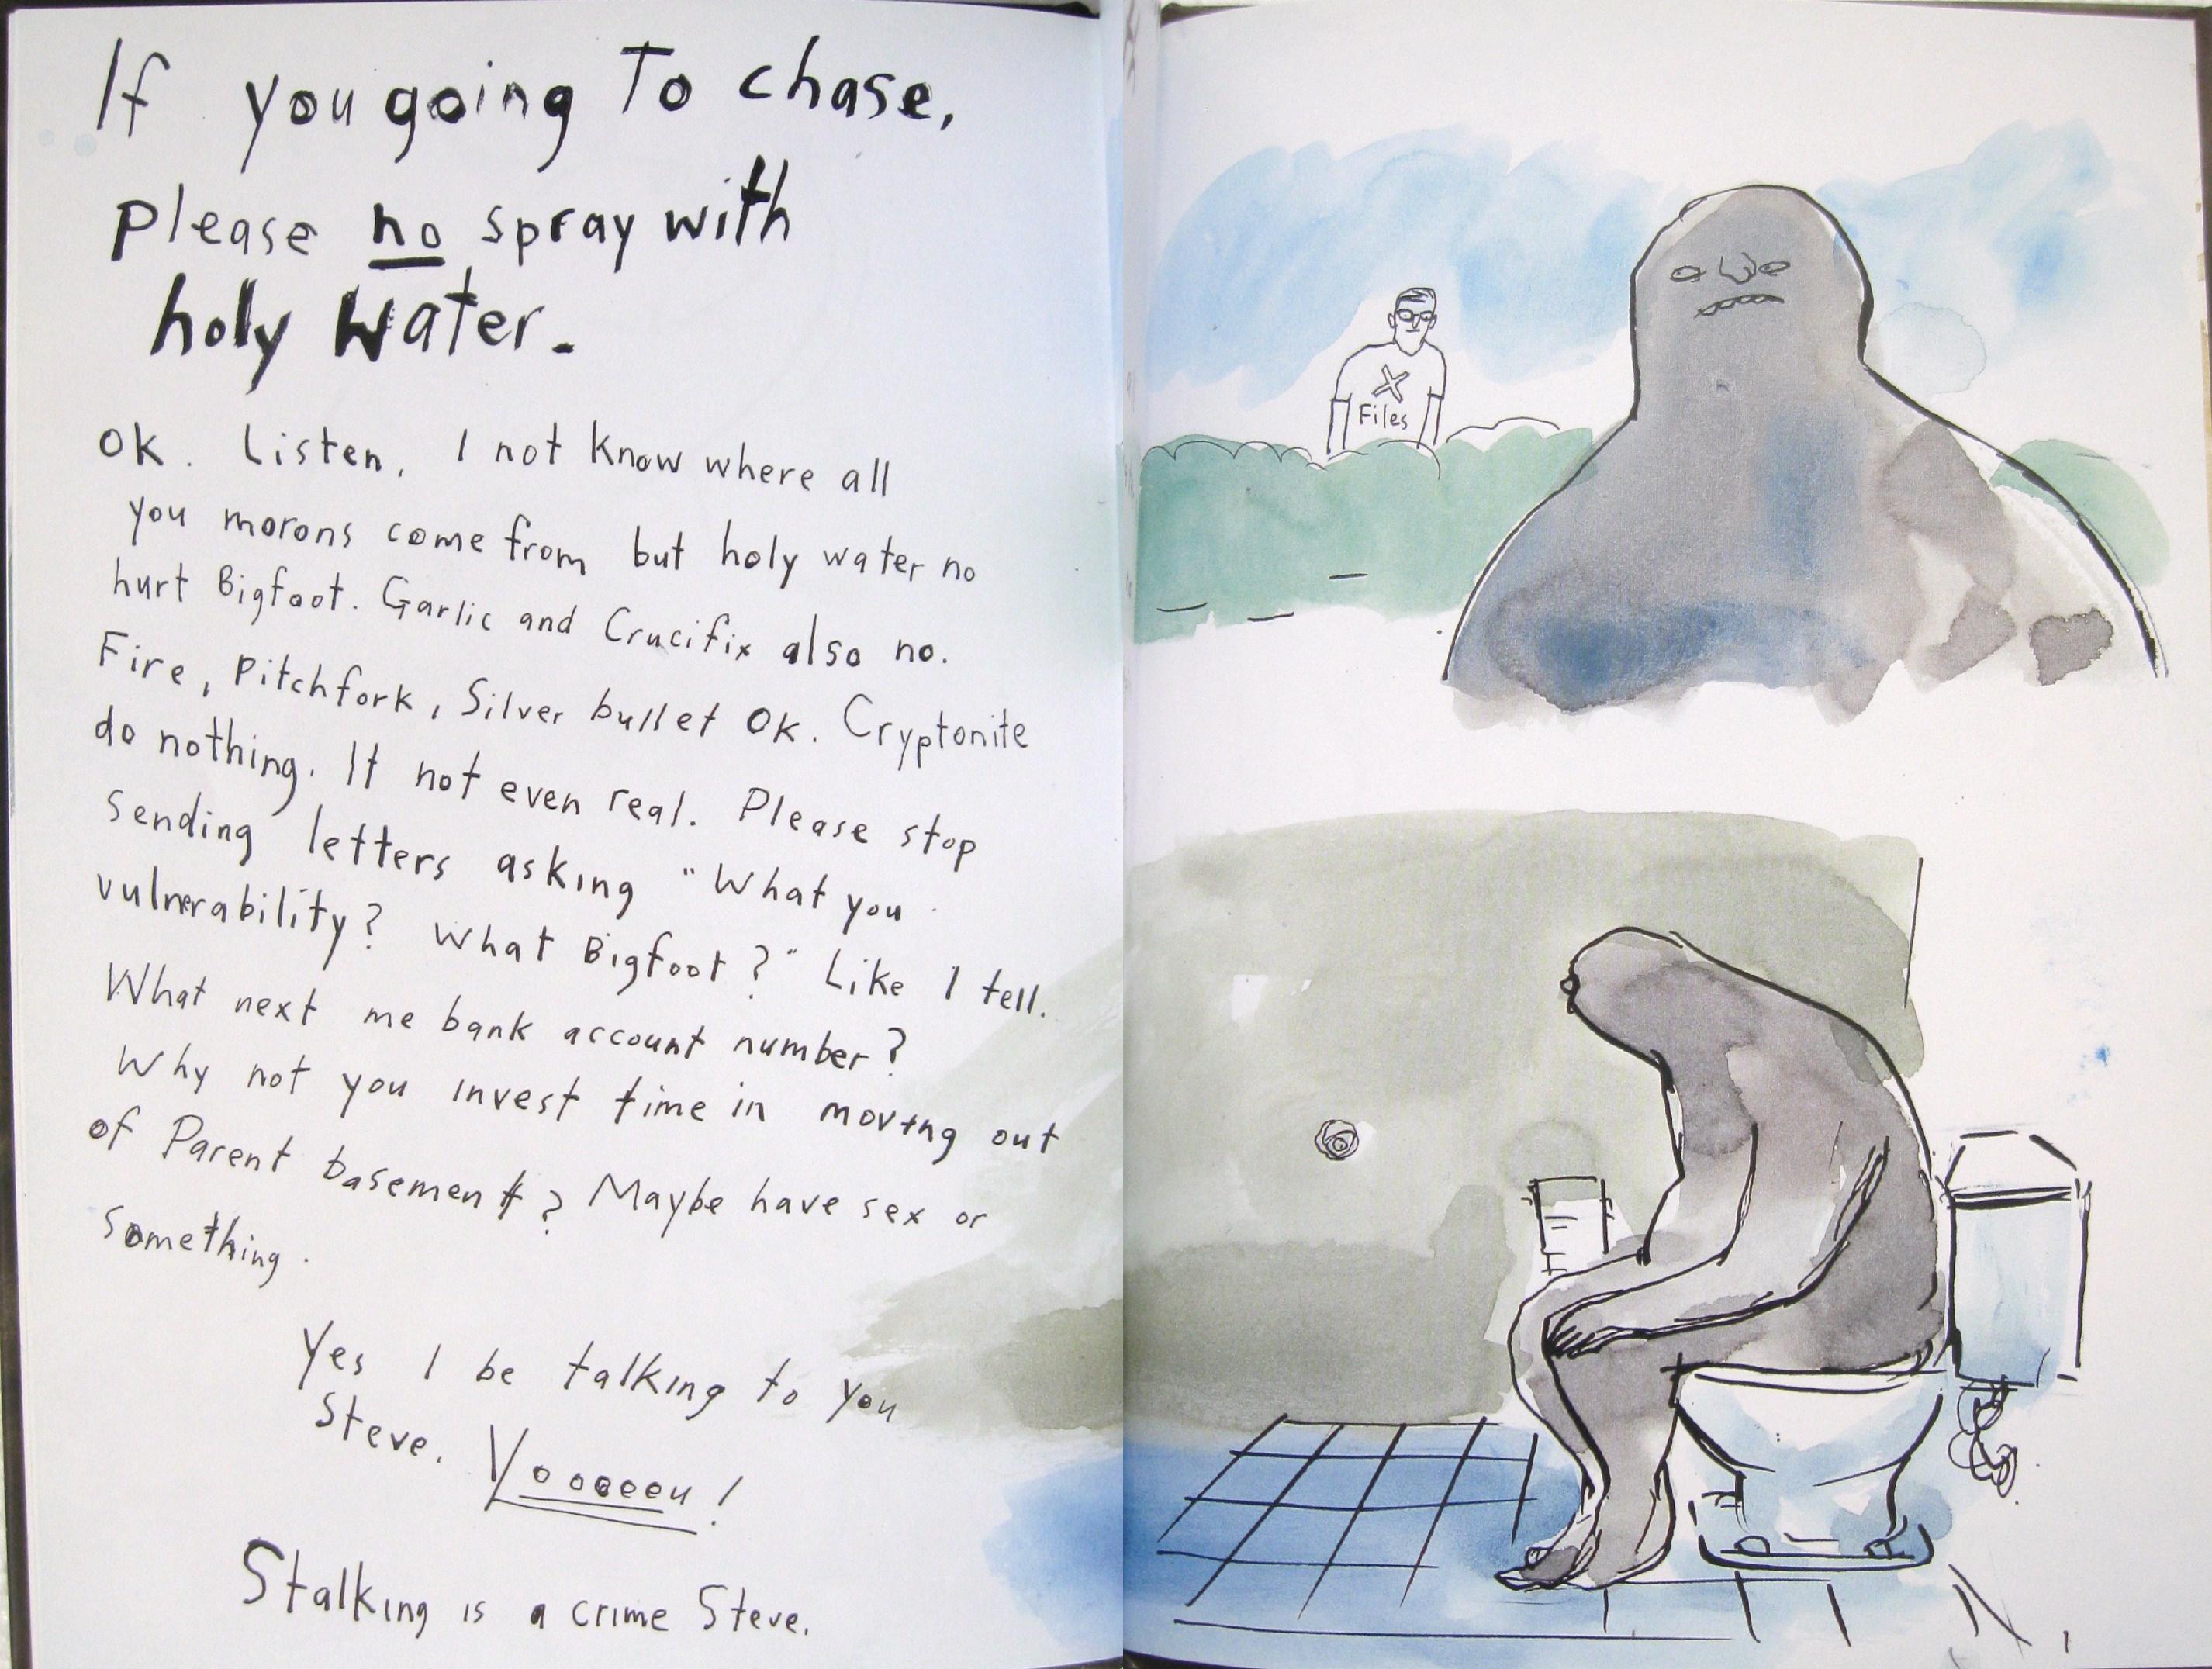 If you going To chase,
please no spray with
holy water.
OK. Listen, I not know where all
you morons come from but holy water no
hurt Bigfoot. Garlic and Crucifix also no.
Fire, Pitchfork, Silver bullet OK. Cryptonite
do nothing. It not even real. Please stop
sending letters asking "What you
vulnerability? What Bigfoot?" Like I tell.
What next me bank account number?
Why not you invest time in moving out
of Parent basement? Maybe have sex or
something.
Yes I be talking to you
Steve. Yooooou!
Stalking is a crime Steve.
X
Files